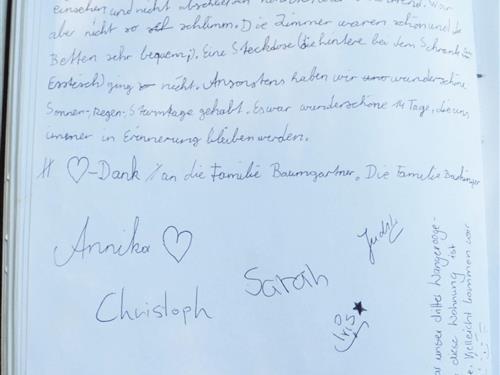 einsehen und nicht abschließen War
aber nicht so schlimm. Die Zimmer waren schön und die
Betten sehr bequem;). Eine Steckdose (die hintere bei dem Schrank
Esstisch) ging nicht. Ansonsten haben wir wunderschöne
Sonnen-, Regen-, Sturmtage gehabt. Es war wunderschöne 14 Tage, die uns
immer in Erinnerung bleiben werden.
♡-Dank an die Familie Baumgartner. Die Familie
Annika ♡
Judith
Sarah
Christoph
Iris ★
unser drittes Wangerooge-
diese Wohnung ist
Vielleicht kommen wir